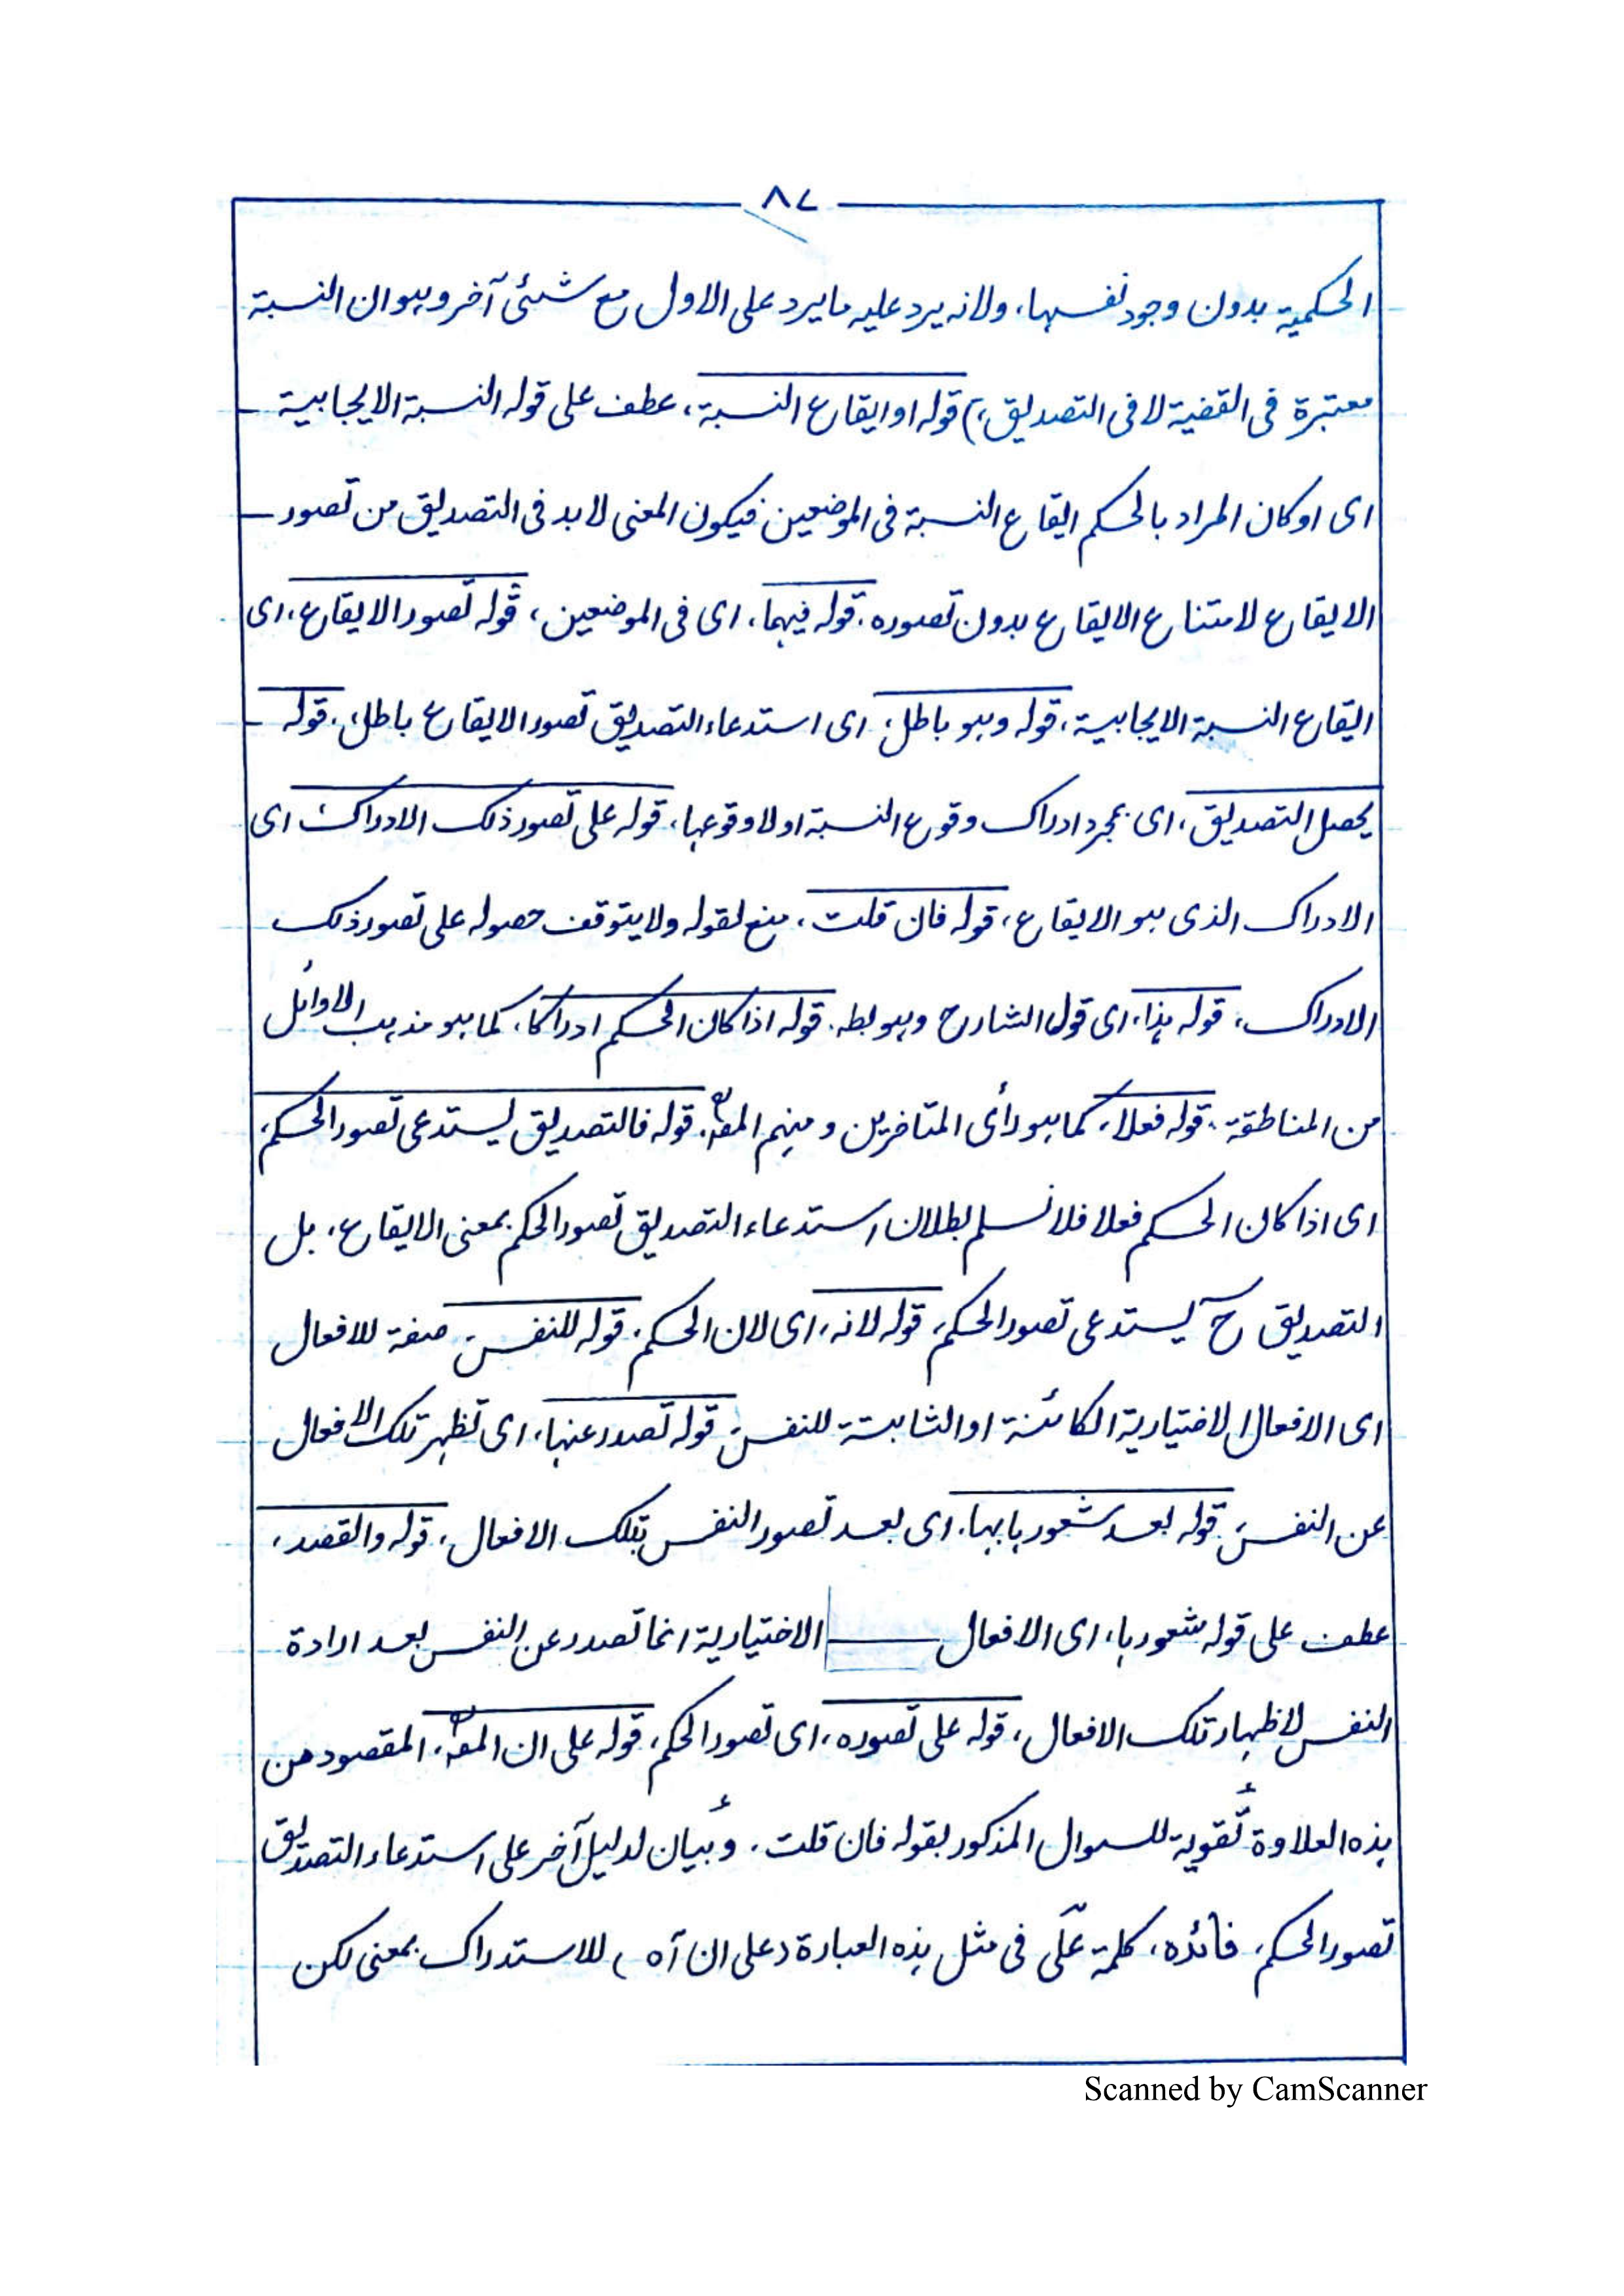 ٨٧
الحكمية بدون وجود نفسها، ولانه يرد عليه ما يرد على الاول مع شئى آخر وهو ان النسبة
معتبرة فى القضية لا فى التصديق،) قوله او ايقاع النسبة، عطف على قوله النسبة الايجابية
اى او كان المراد بالحكم ايقاع النسبة فى الموضعين فيكون المعنى لا بد فى التصديق من تصور
الايقاع لامتناع الايقاع بدون تصوره. قوله فيهما، اى فى الموضعين، قوله تصور الايقاع، اى
ايقاع النسبة الايجابية، قوله وهو باطل، اى استدعاء التصديق تصور الايقاع باطل، قوله
يحصل التصديق، اى بمجرد ادراك وقوع النسبة او لا وقوعها، قوله على تصور ذلك الادراك، اى
الادراك الذى هو الايقاع، قوله فان قلت، منع لقوله ولا يتوقف حصوله على تصور ذلك
الادراك، قوله هذا، اى قول الشارح وهو بطه. قوله اذا كان الحكم ادراكا، كما هو مذهب الاوائل
من المناطقة. قوله فعلا، كما هو رأى المتاخرين ومنهم المصؒ. قوله فالتصديق يستدعى تصور الحكم،
اى اذا كان الحكم فعلا فلا نسلم بطلان استدعاء التصديق تصور الحكم بمعنى الايقاع، بل
التصديق ح يستدعى تصور الحكم، قوله لانه، اى لان الحكم. قوله للنفس، صفة للافعال
اى الافعال الاختيارية الكائنة او الثابتة للنفس، قوله تصدر عنها، اى تظهر تلك الافعال
عن النفس، قوله بعد شعورها بها، اى بعد تصور النفس بتلك الافعال، قوله والقصد،
عطف على قوله شعورها، اى الافعال الاختيارية انما تصدر عن النفس بعد ارادة
النفس لاظهار تلك الافعال، قوله على تصوره، اى تصور الحكم، قوله على ان المصؒ، المقصود من
هذه العلاوة تقوية للسوال المذكور بقوله فان قلت. وبيان لدليل آخر على استدعاء التصديق
تصور الحكم، فائده، كلمة على فى مثل هذه العبارة (على ان آه) للاستدراك بمعنى لكن
Scanned by CamScanner